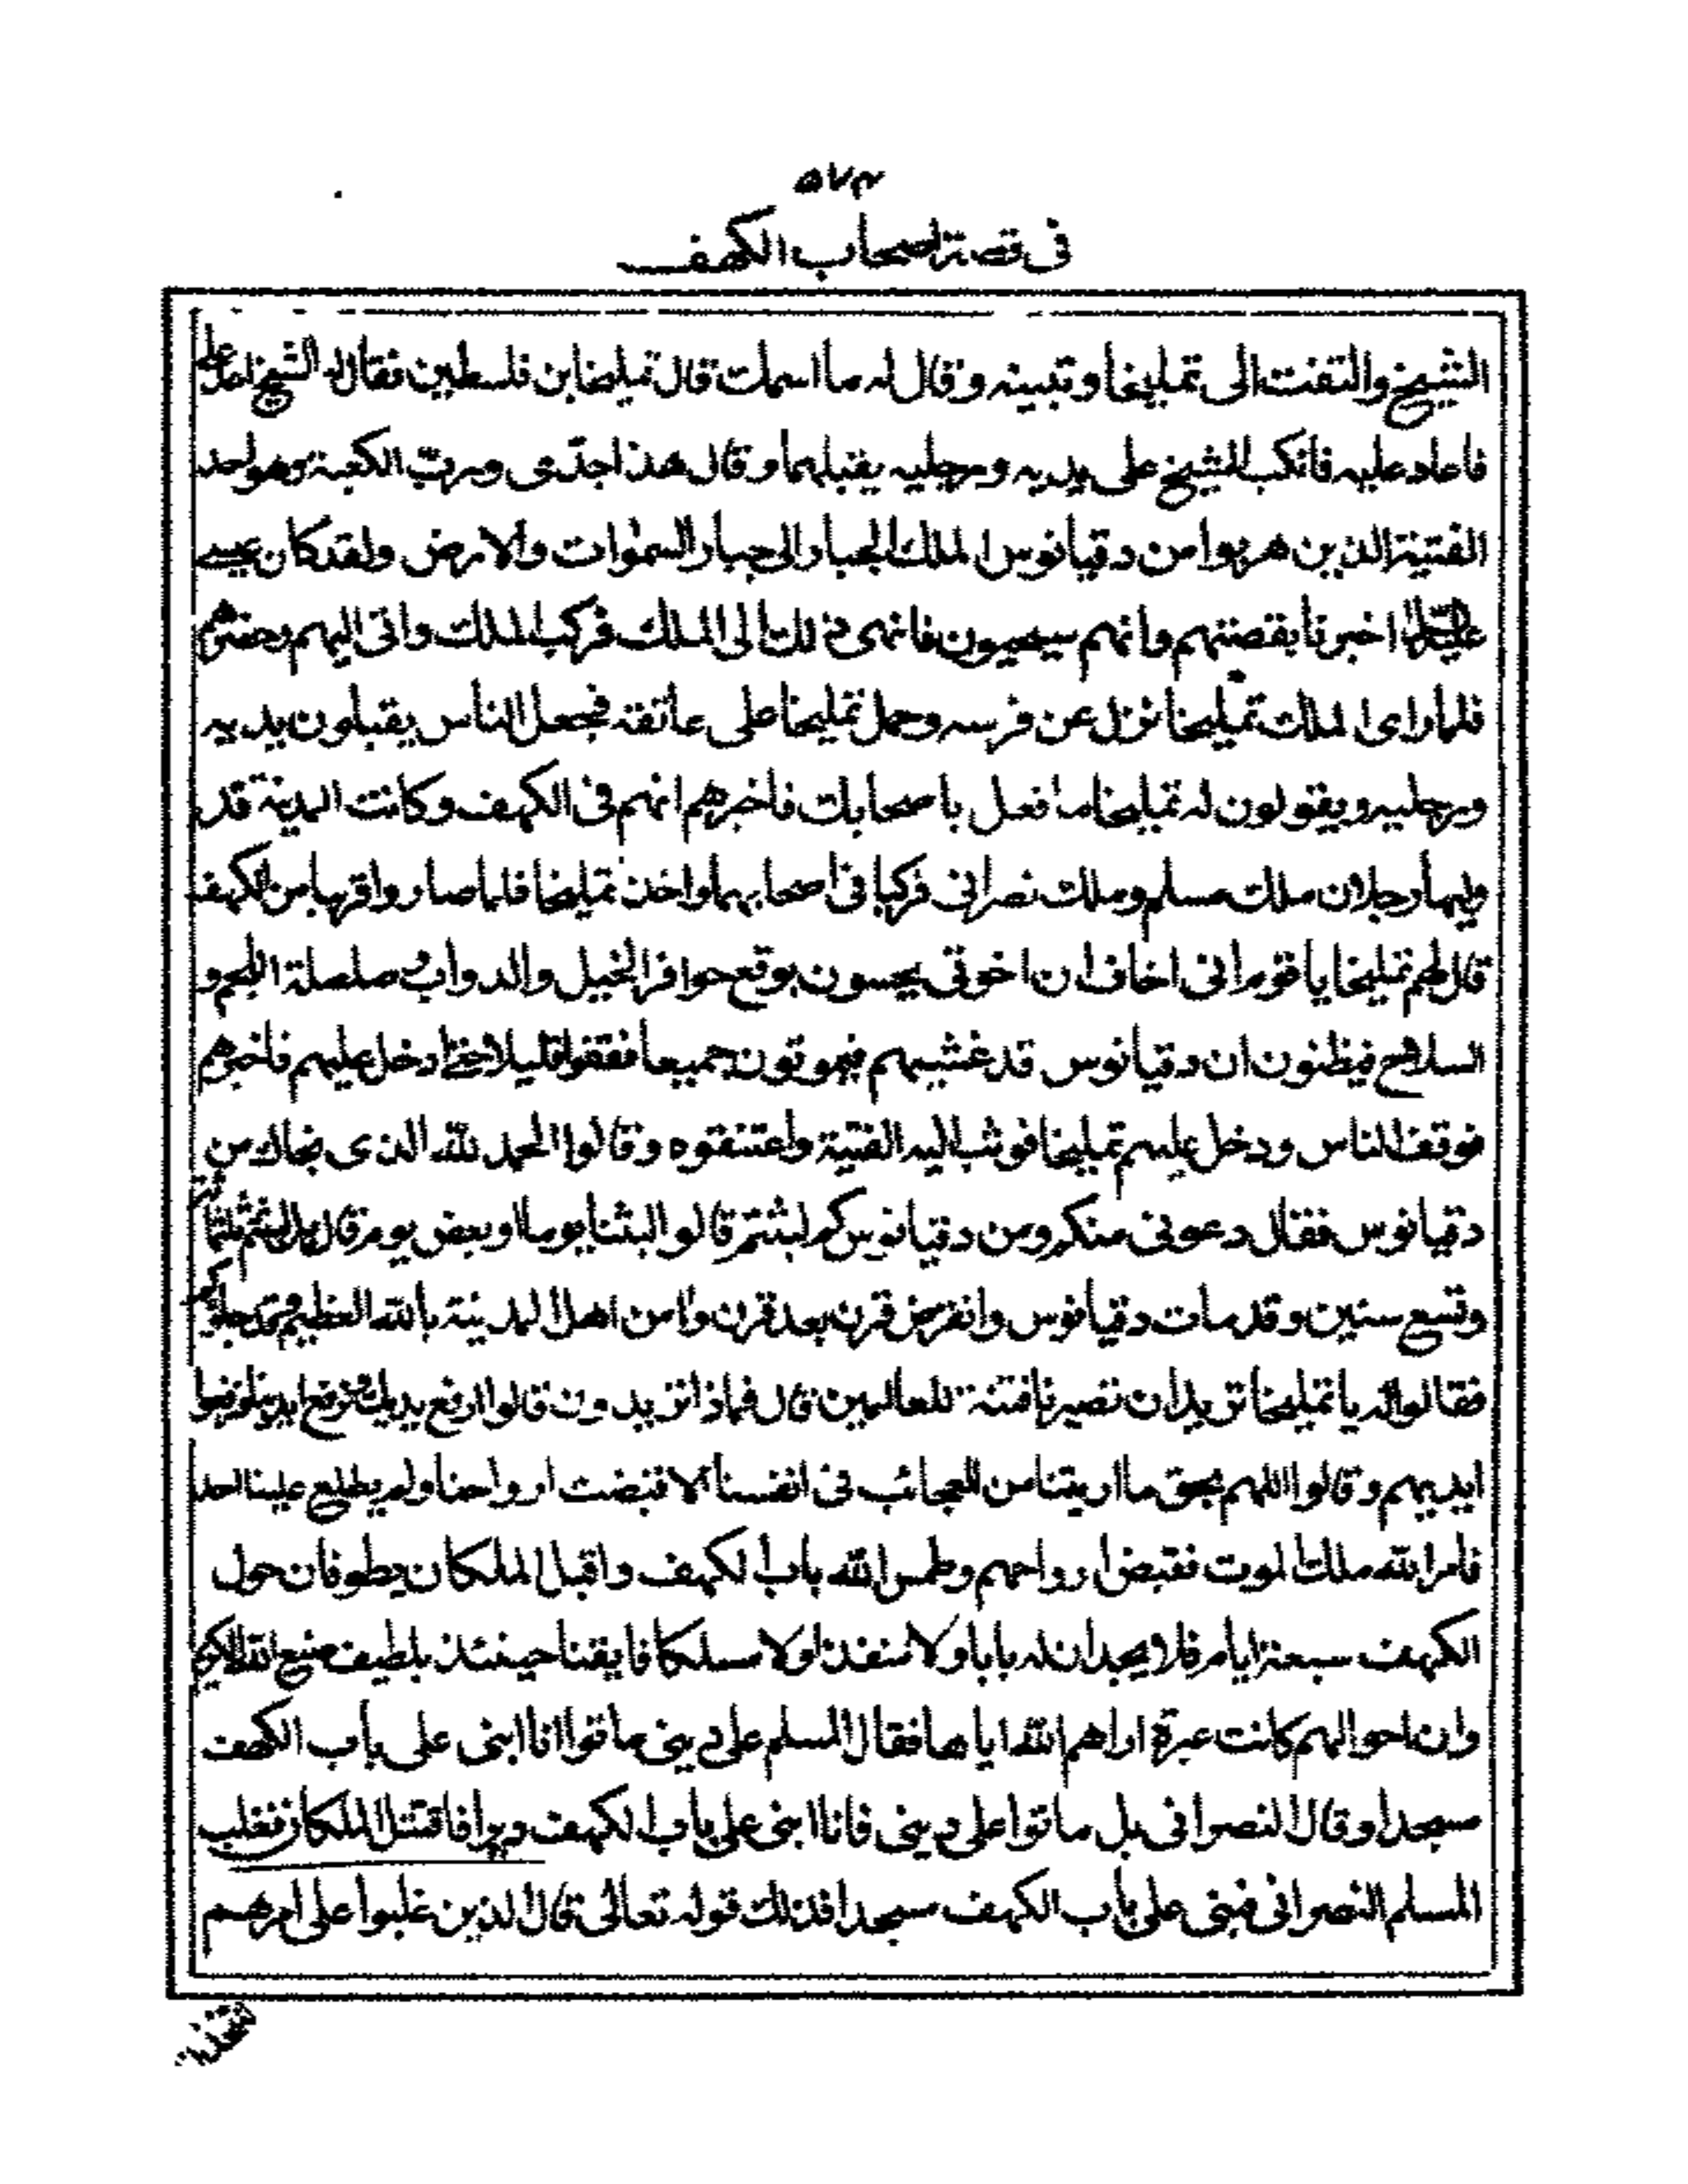 ٥٧٣
فى قصة اصحاب الكهف
الشيخ والتفت الى تمليخا وتبينه وقال له ما اسمك قال تمليخا بن فلسطين فقال له الشيخ اعد على
فاعاد عليه فانكب الشيخ على يديه ورجليه يقبلهما وقال هذا جدى ورب الكعبة وهو احد
الفتية الذين هربوا من دقيانوس الملك الجبار الى جبار السموات والارض ولقد كان عيسى
عليه السلام اخبرنا بقصتهم وانهم سيحيون فانهى ذلك الى الملك فركب الملك واتى اليهم وحضرهم
فلما راى الملك تمليخا نزل عن فرسه وحمل تمليخا على عاتقه فجعل الناس يقبلون يديه
ورجليه ويقولون له تمليخا ما فعل باصحابك فاخبرهم انهم فى الكهف وكانت المدينة قد
وليها رجلان ملك مسلم وملك نصرانى فركبا فى اصحابهما واخذ تمليخا فلما صاروا قربها من الكهف
قال لهم تمليخا يا قوم انى اخاف ان اخوتى يحسون بوقع حوافر الخيل والدواب وصلصلة اللجم و
السلاح فيظنون ان دقيانوس قد غشيهم فيموتون جميعا فقفوا قليلا حتى ادخل عليهم فاخبرهم
فوقف الناس ودخل عليهم تمليخا فوثب اليه الفتية واعتنقوه وقالوا الحمد لله الذى نجاك من
دقيانوس فقال دعونى منكم ومن دقيانوس كم لبثتم قالوا لبثنا يوما او بعض يوم قال بل لبثتم ثلثمائة
وتسع سنين وقد مات دقيانوس وانقرض قرن بعد قرن وامن اهل المدينة بالله العظيم وقد جاؤكم
فقالوا له يا تمليخا تريد ان تصيرنا فتنة للعالمين قال فماذا تريدون قالوا ارفع يديك ونرفع ايدينا فرفعوا
ايديهم وقالوا اللهم بحق ما اريتنا من العجائب فى انفسنا الا قبضت ارواحنا ولم يطلع علينا احد
فامر الله ملك الموت فقبض ارواحهم وطمس الله باب الكهف واقبل الملكان يطوفان حول
الكهف سبعة ايام فلا يجدان له بابا ولا منفذا ولا مسلكا فايقنا حينئذ بلطيف صنع الله الكريم
وان احوالهم كانت عبرة اراهم الله اياها فقال المسلم على دينى ماتوا انا ابنى على باب الكهف
مسجدا وقال النصرانى بل ماتوا على دينى فانا ابنى على باب الكهف ديرا فاقتتل الملكان فغلب
المسلم النصرانى فبنى على باب الكهف مسجدا فذلك قوله تعالى قال الذين غلبوا على امرهم
لنتخذن